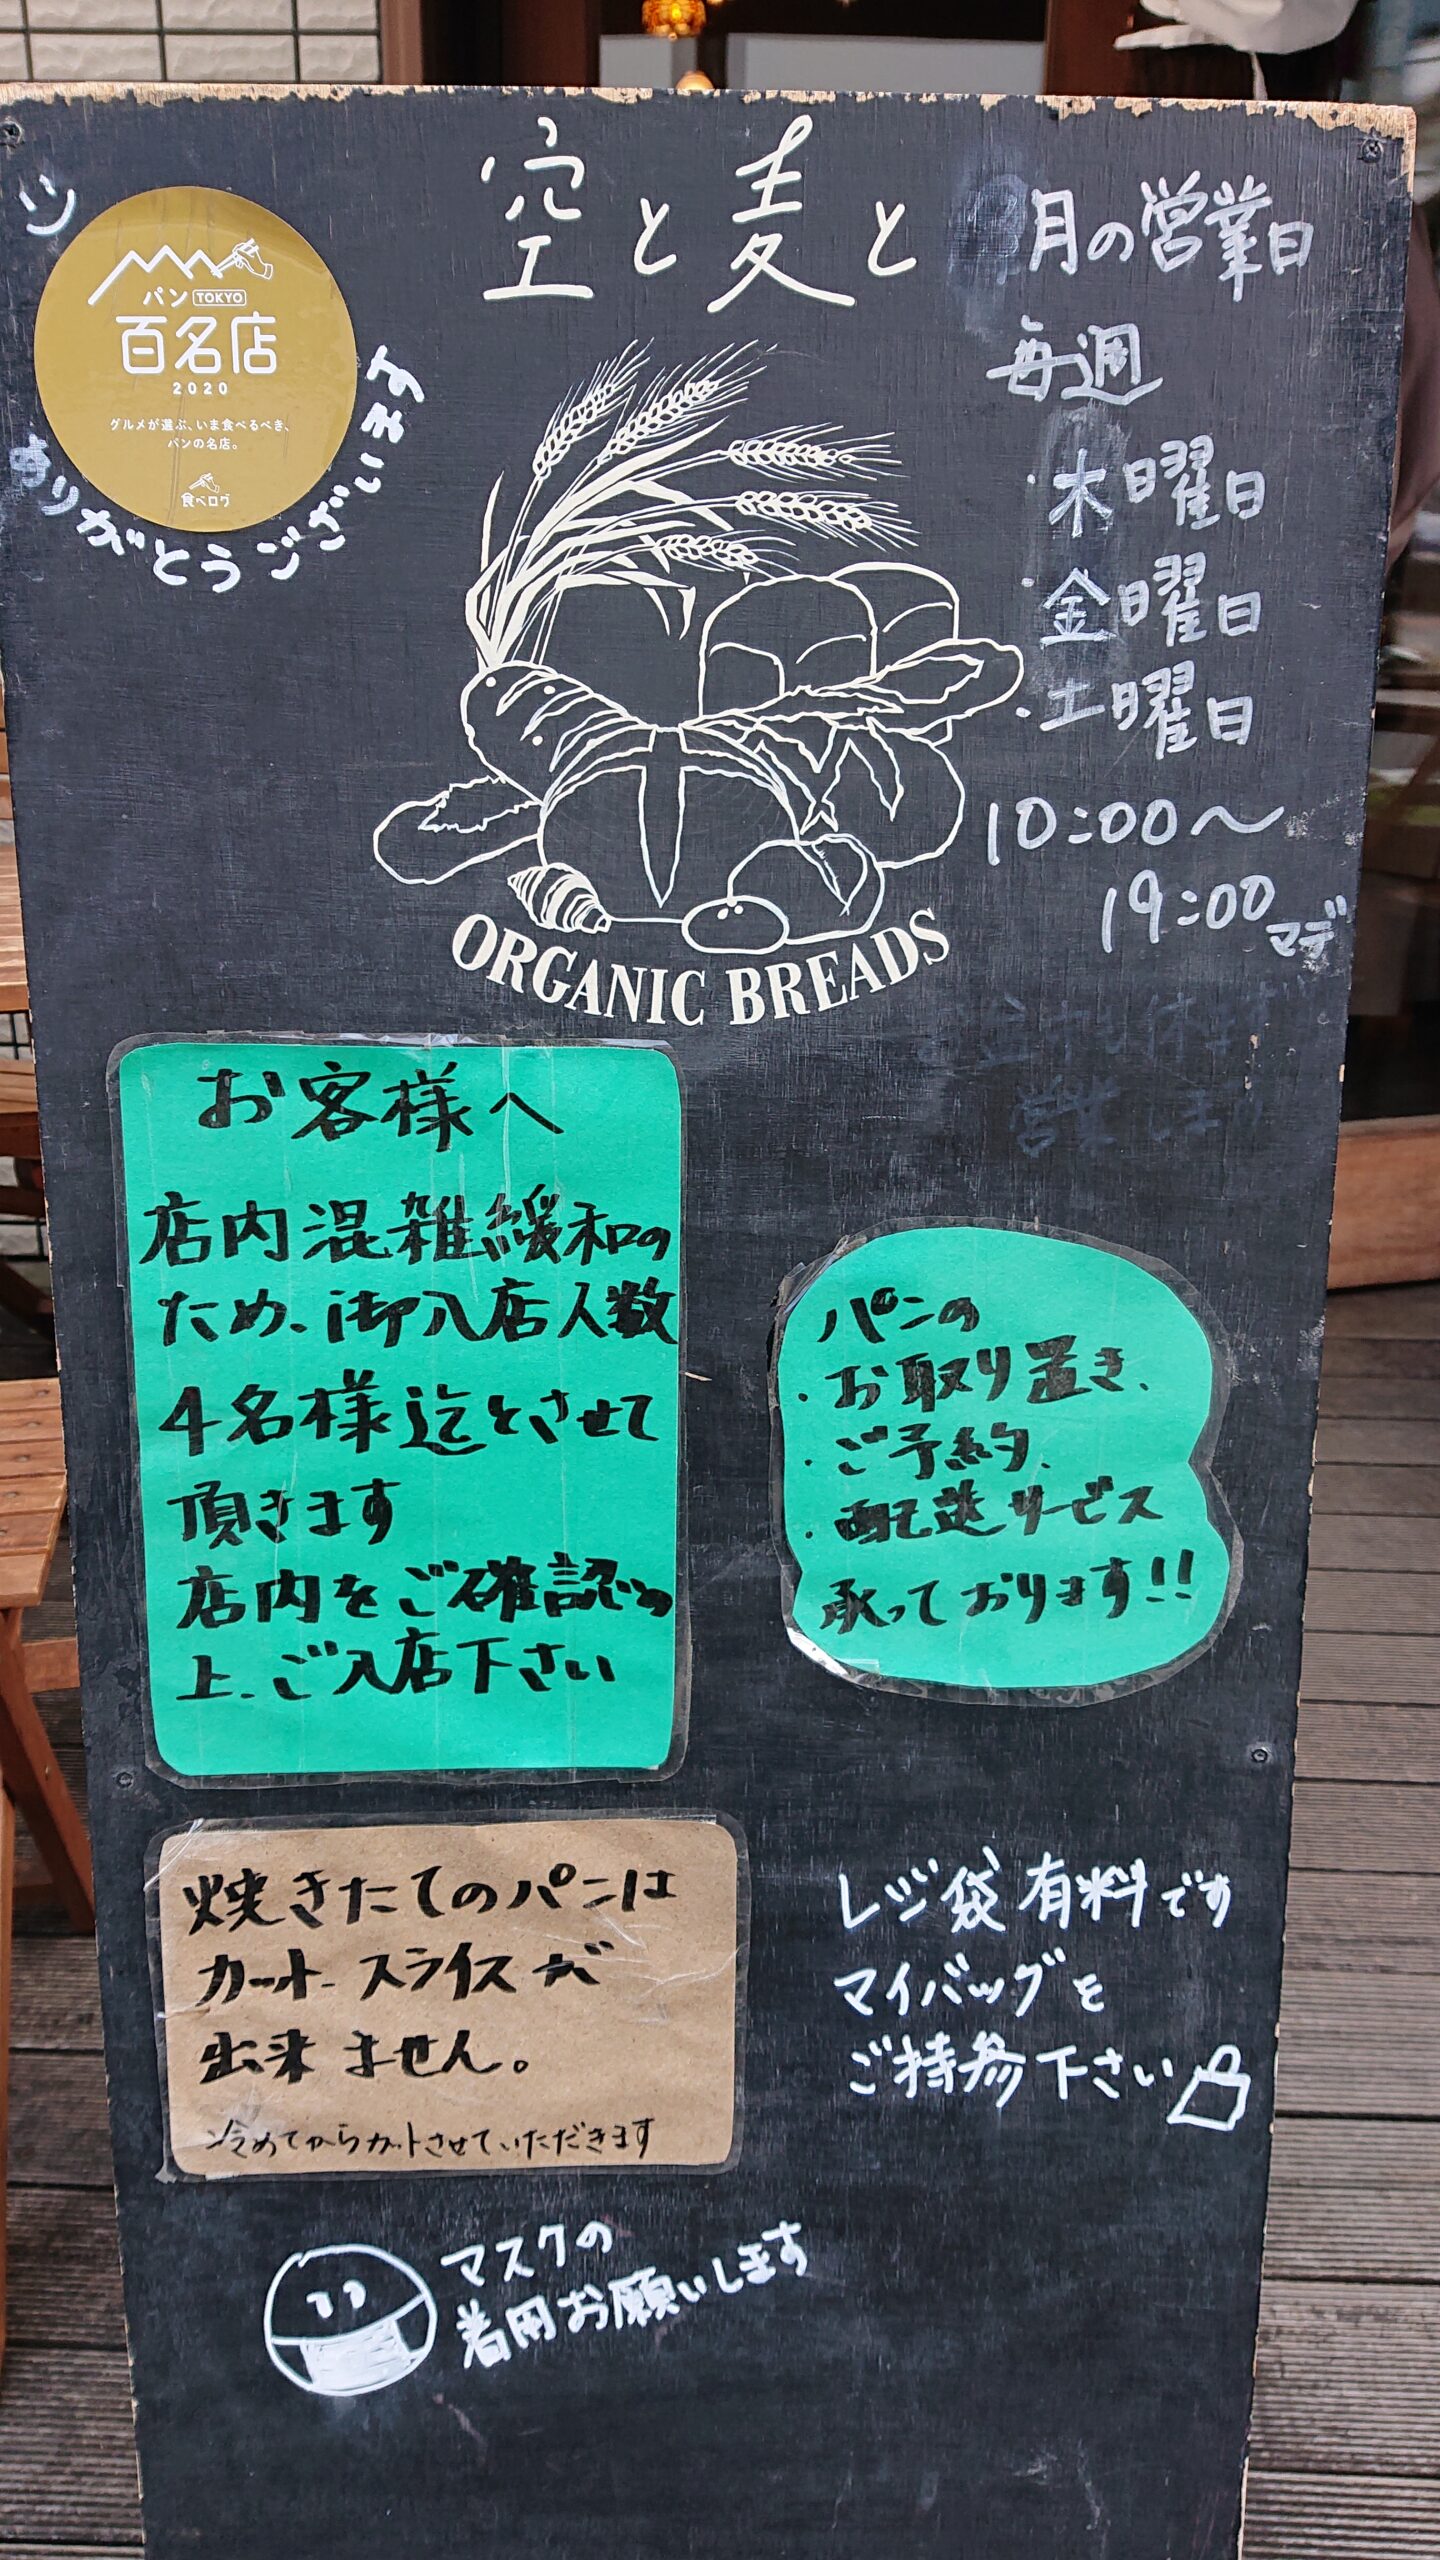 空と麦と
パン TOKYO
百名店
2020
グルメが選ぶ、いま食べるべき、
パンの名店。
食べログ
ありがとうございます
月の営業日
毎週
・木曜日
・金曜日
・土曜日
10:00〜
19:00マデ
ORGANIC BREADS
お客様へ
店内混雑緩和の
ため、御入店人数
4名様迄とさせて
頂きます
店内をご確認の
上、ご入店下さい
パンの
・お取り置き、
・ご予約、
・配送サービス
承っております!!
焼きたてのパンは
カット、スライスが
出来ません。
冷めてからカットさせていただきます
レジ袋有料です
マイバッグを
ご持参下さい
マスクの
着用お願いします